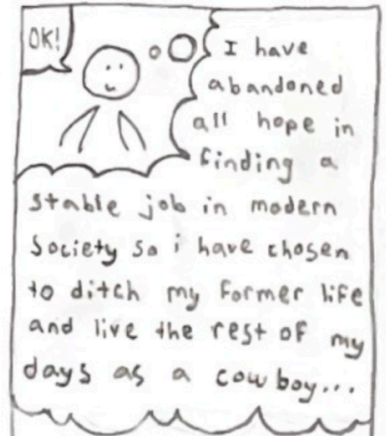 OK!
I have
abandoned
all hope in
finding a
stable job in modern
Society so i have chosen
to ditch my former life
and live the rest of my
days as a cowboy...